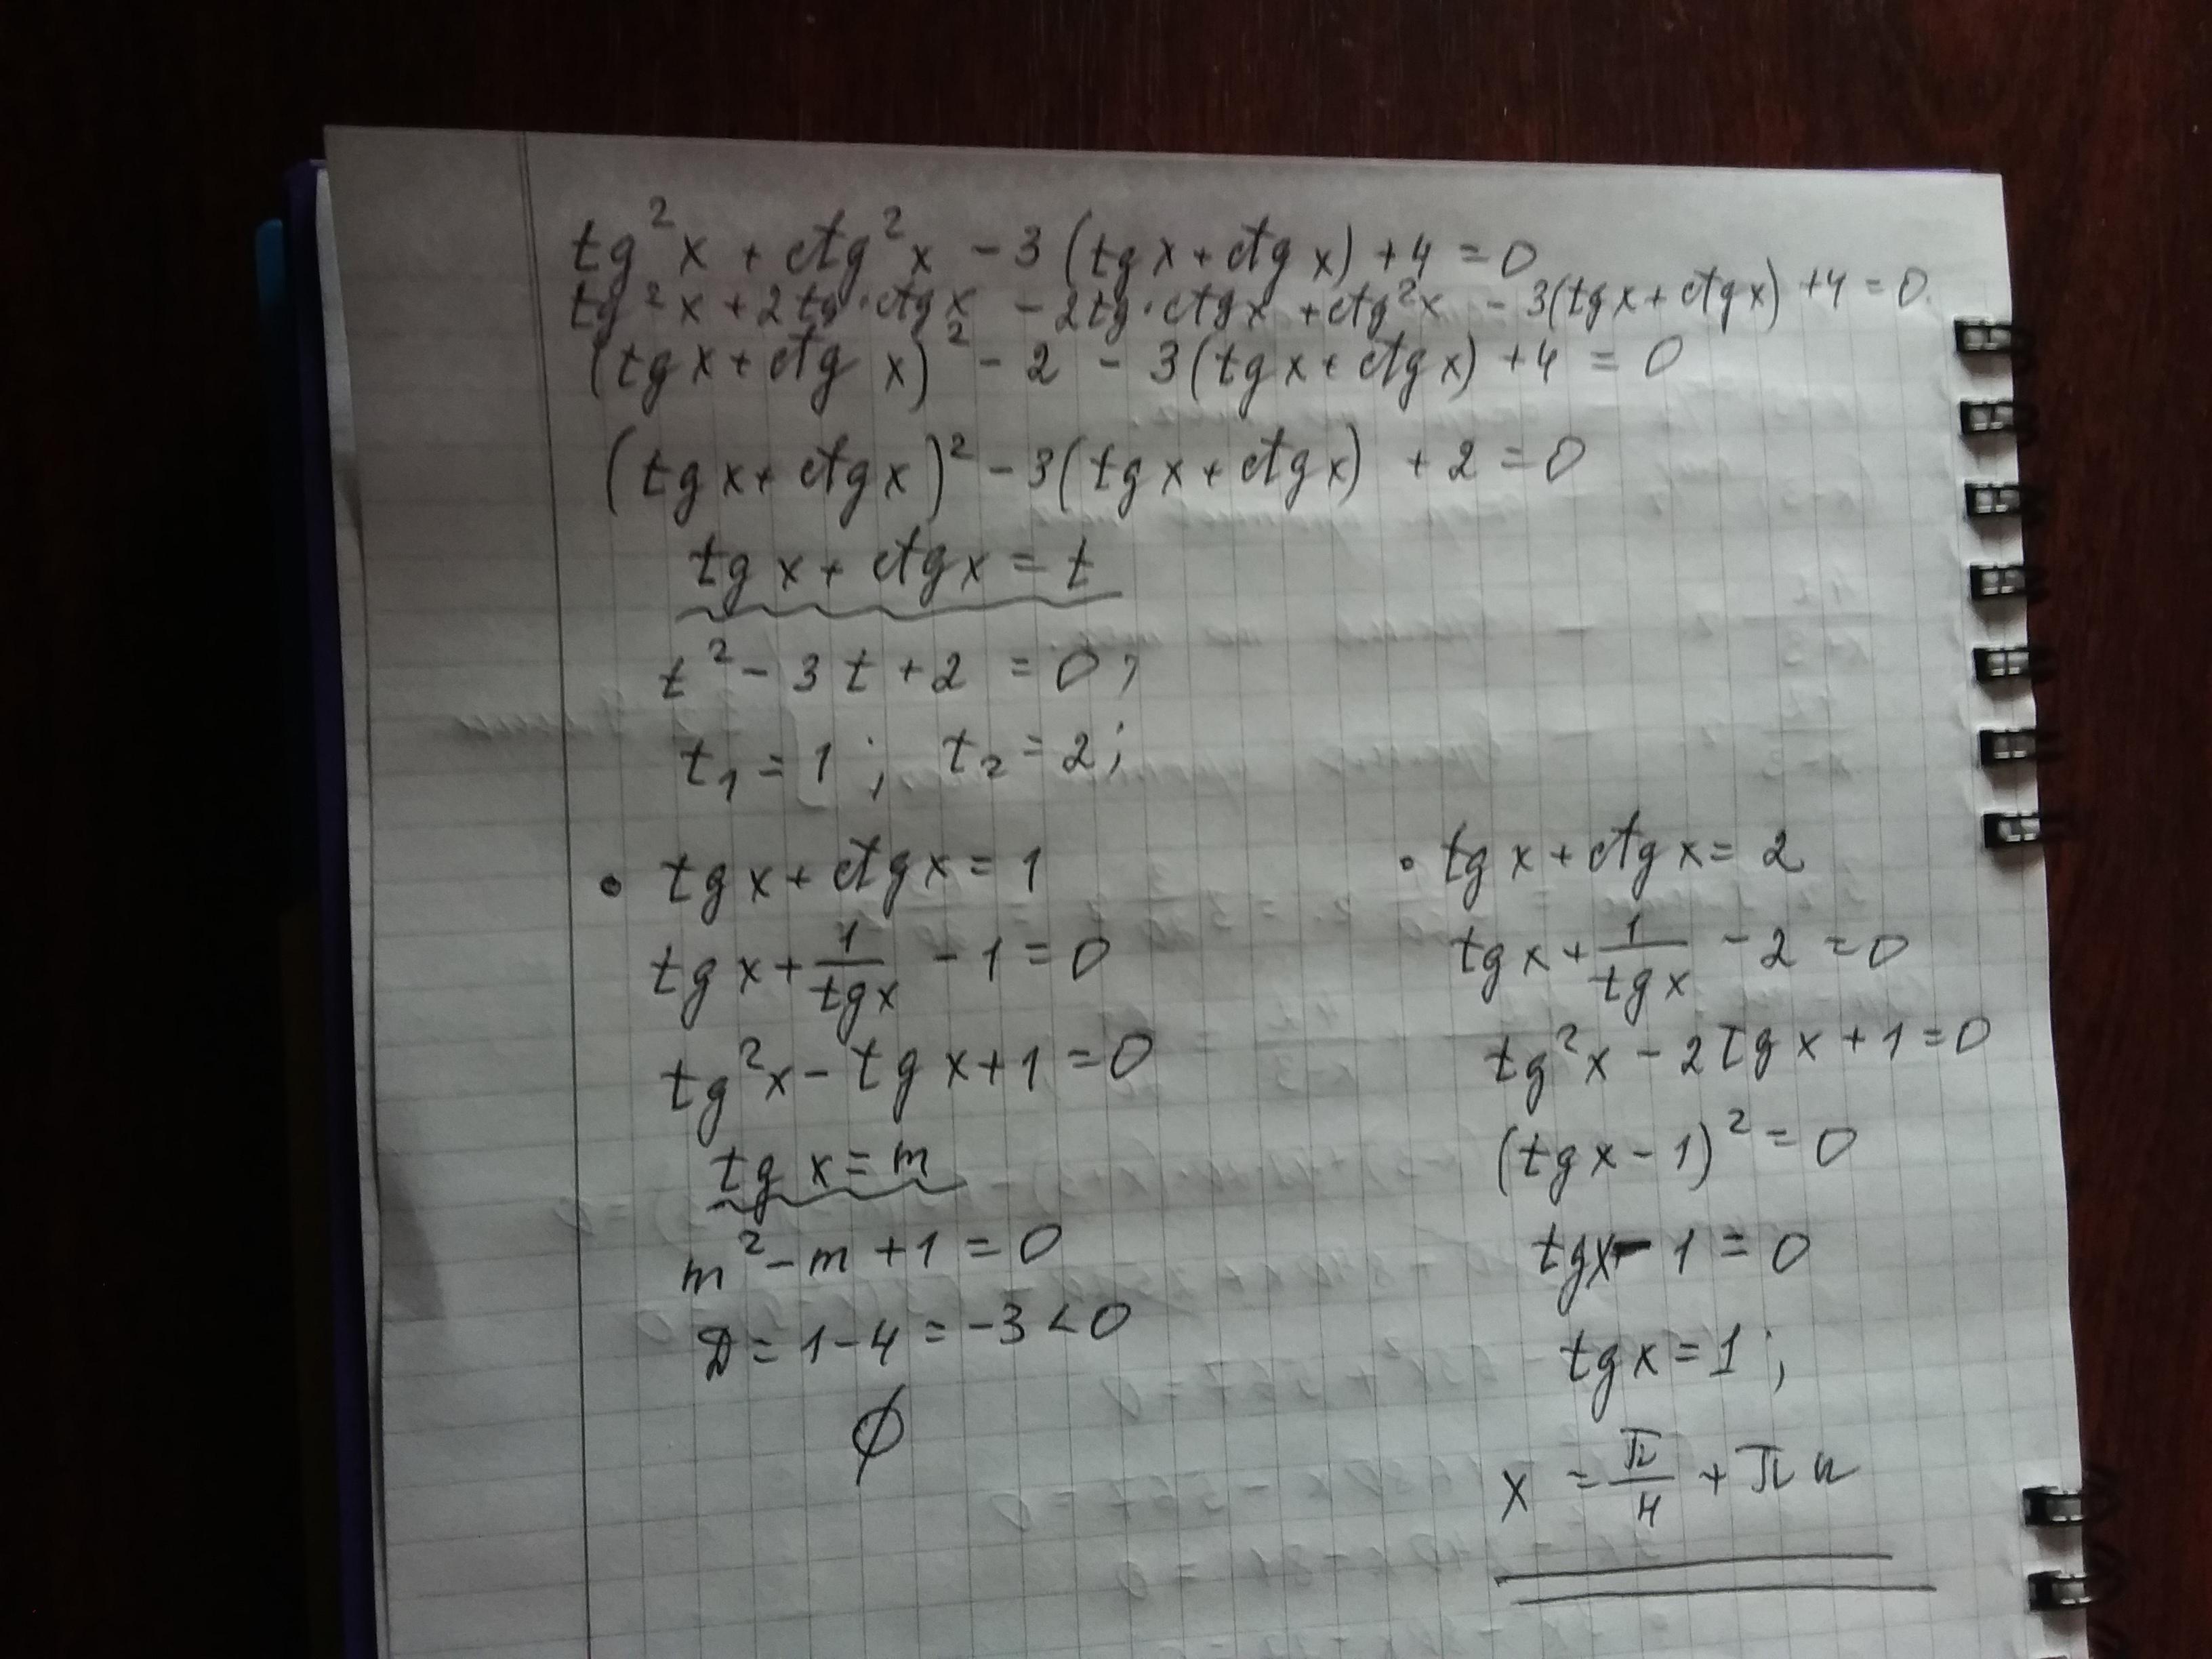 tg²x + ctg²x − 3(tgx + ctgx) + 4 = 0
tg²x + 2tg·ctgx − 2tg·ctgx + ctg²x − 3(tgx + ctgx) + 4 = 0
(tgx + ctgx)² − 2 − 3(tgx + ctgx) + 4 = 0
(tgx + ctgx)² − 3(tgx + ctgx) + 2 = 0
tgx + ctgx = t
t² − 3t + 2 = 0;
t₁ = 1; t₂ = 2;
• tgx + ctgx = 1
tgx + 1/tgx − 1 = 0
tg²x − tgx + 1 = 0
tgx = m
m² − m + 1 = 0
D = 1 − 4 = −3 < 0
∅
• tgx + ctgx = 2
tgx + 1/tgx − 2 = 0
tg²x − 2tgx + 1 = 0
(tgx − 1)² = 0
tgx − 1 = 0
tgx = 1;
x = π/4 + πn